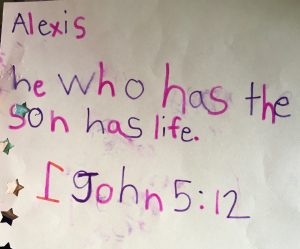 Alexis
he who has the
son has life.
I John 5:12